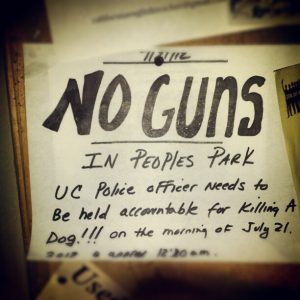 7/21/12
NO GUNS
IN PEOPLES PARK
UC Police officer Needs to
Be held accountable for Killing A
Dog!!! on the morning of July 21.
2012 @ approx 12:30 am.
Use